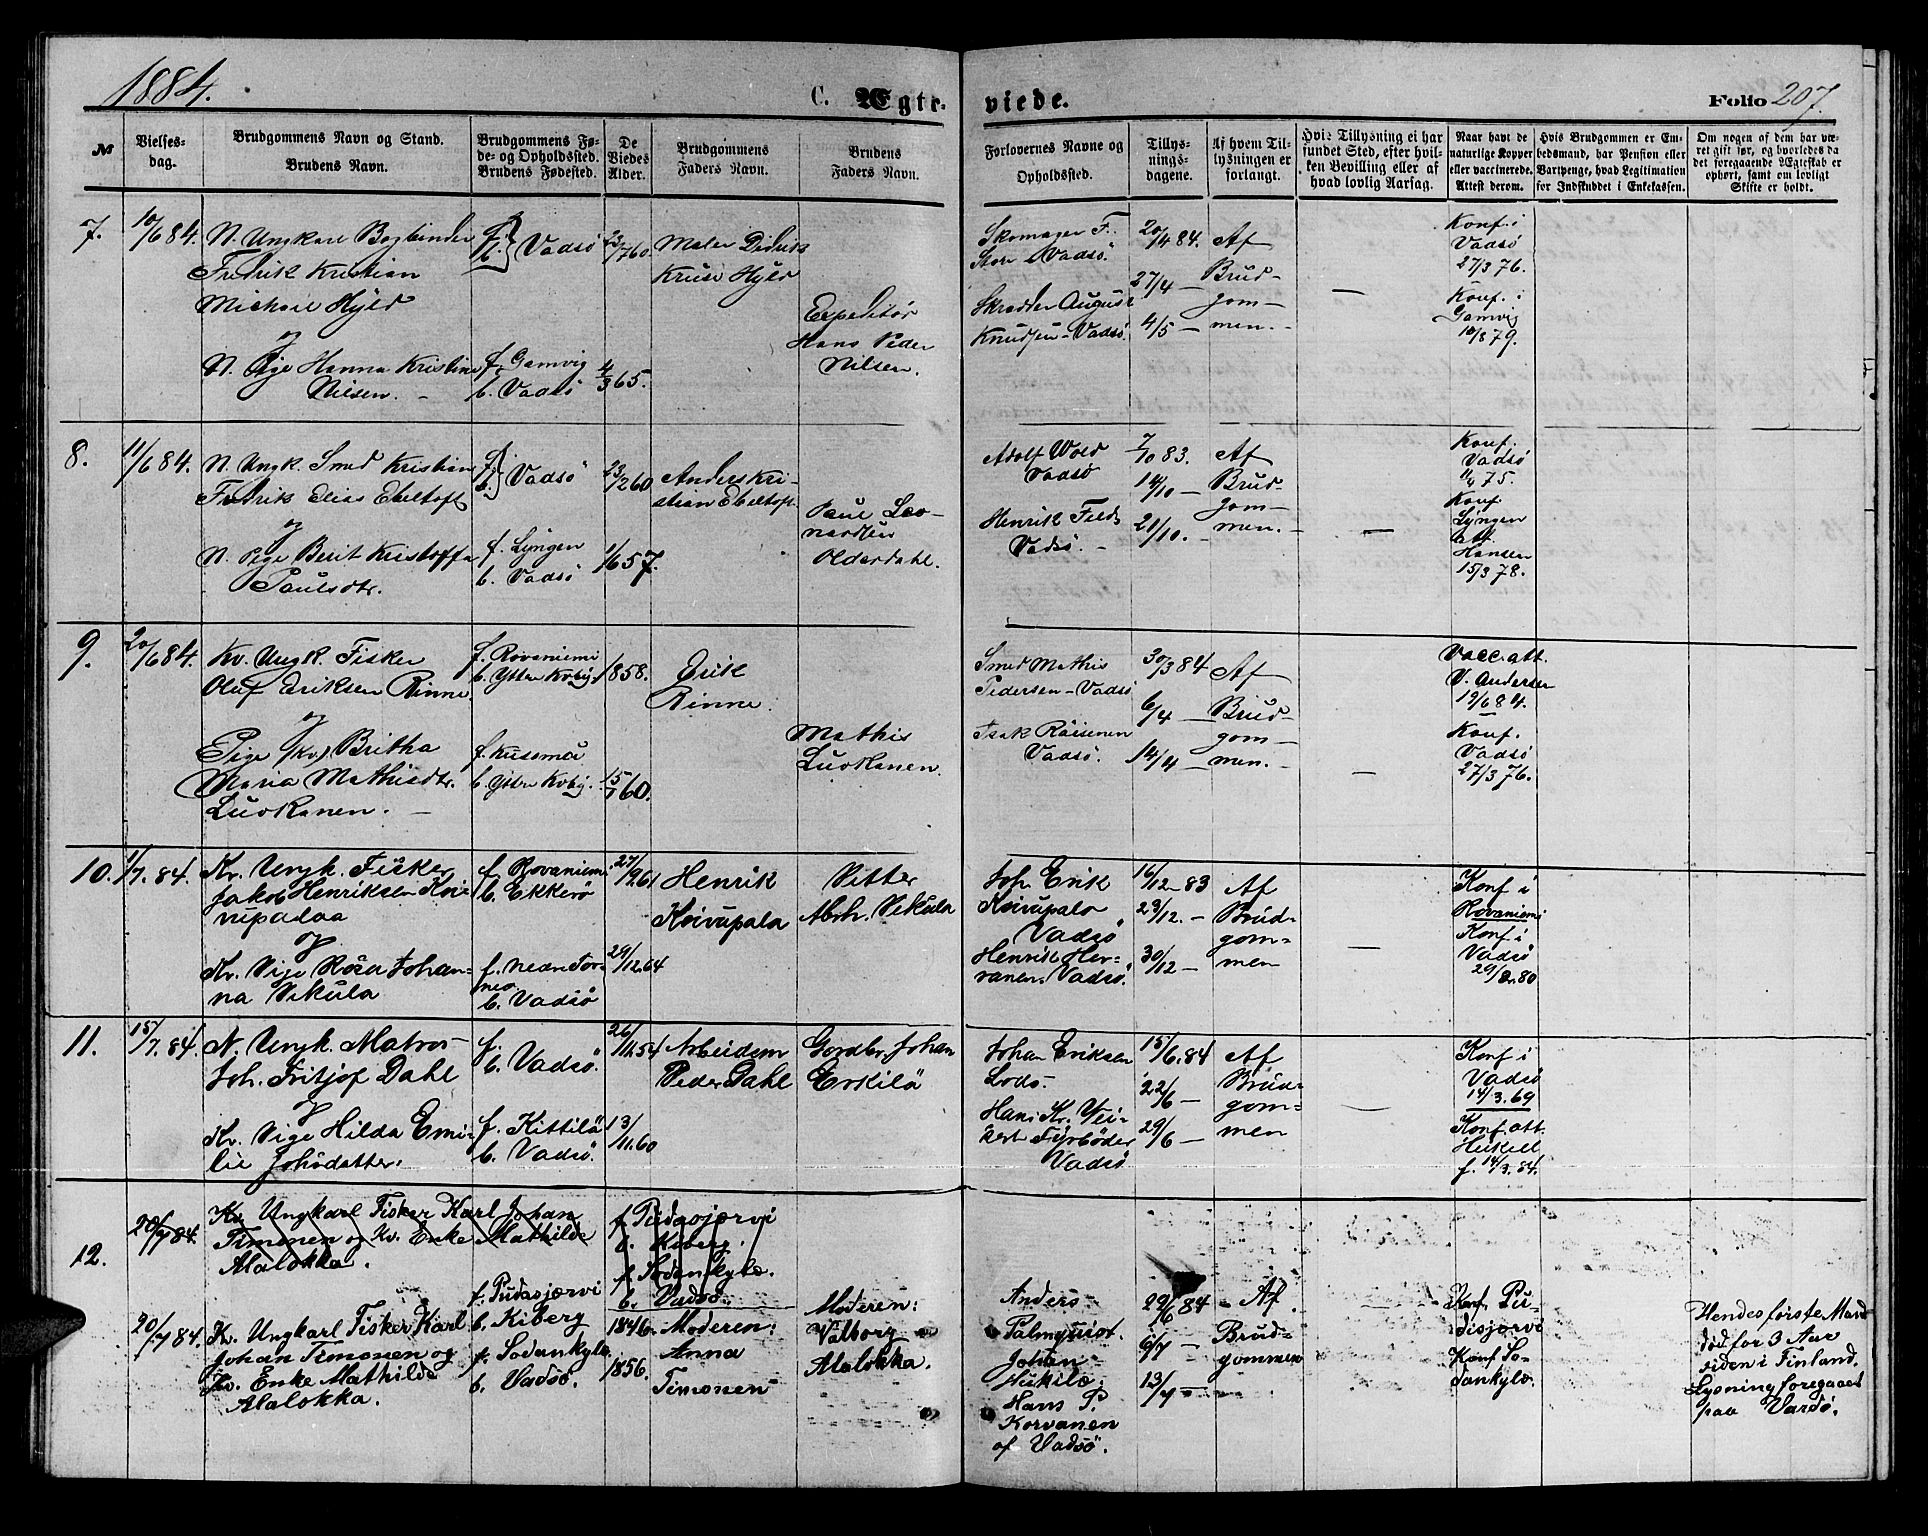 1884.
C. Ægte-
viede.
Folio 207.
№
Vielses-
dag.
Brudgommens Navn og Stand.
Brudens Navn.
Brudgommens Fø-
de- og Opholdssted.
Brudens Fødested.
De
Viedes
Alder.
Brudgommens
Faders Navn.
Brudens
Faders Navn.
Forlovernes Navne og
Opholdssted.
Tillys-
nings-
dagene.
Af hvem Til-
lysningen er
forlangt.
Hvis Tillysning ei har
fundet Sted, efter hvil-
ken Bevilling eller af
hvad lovlig Aarsag.
Naar havt de
naturlige Kopper
eller vaccinerede.
Attest derom.
Hvis Brudgommen er Em-
bedsmand, har Pension eller
Vartpenge, hvad Legitimation
for Indskuddet i Enkekassen.
Om nogen af dem har væ-
ret gift før, og hvorledes da
det foregaaende Ægteskab er
ophørt, samt om lovligt
Skifte er holdt.
7.
10/6 84.
N. Ungkarl Bogbinder
Fredrik Kristian
Michael Hyld
og
N. Pige Hanna Kristine
Nilsen.
f.
b. } Vadsö
f. Gamvig
b. Vadsö
23/7 60.
4/3 65.
Maler Didrik
Kruse Hyld
Expeditör
Hans Peder
Nilsen.
Skomager F.
Store Vadsö.
Skrædder August
Knudsen - Vadsö.
20/4 84.
27/4 —
4/5 —
Af
Brud-
gom-
men.
—
Konf. i
Vadsö
27/3 76.
Konf. i
Gamvig
10/8 79.
8.
11/6 84.
N. Ungk. Smed Kristian
Fredrik Elias Ebeltoft
og
N. Pige Berit Kristoffa
Paulsdtr.
f.
b. } Vadsö
f. Lyngen
b. Vadsö
23/2 60
1/6 57.
Anders Kri-
stian Ebeltoft
Paul Leo-
nardsen
Olderdahl.
Adolf Wold
Vadsö
Henrik Feldt
Vadsö.
7/10 83.
14/10 —
21/10. —
Af
Brud-
gom-
men.
—
Konf.
Vadsö
11/4 75.
Konf.
Lyngen
att.
Hansen
15/3 78.
9.
20/6 84.
Kv. Ungk. Fisker
Oluf Eriksen Rinne
og
Pige (Kv) Britha
Maria Mathisdtr.
Luokanen.
f. Rovaniemi
b. Ytre Kvby.
f. Kusomæ
b. Ytre Kvby.
1858.
15/1 60.
Erik
Rinne.
Mathis
Luokanen.
Smed Mathis
Pedersen - Vadsö
Isak Räisenen
Vadsö.
30/3 84
6/4 —
14/4 —
Af
Brud-
gom-
men.
—
Vacc. att.
V. Andersen
19/6 84.
Konf.
Vadsö
27/3 76.
10.
1/7. 84.
Kv. Ungk. Fisker
Jakob Henriksen Koi-
nipadaa
og
Kv. Pige Rosa Johan-
na Vikula
f. Rovaniemi
b. Ekkerö
f. Nedn Tor-
neo
b. Vadsö
27/9. 61
29/12. 64
Henrik
Koirupala
Vitter
Abrh. Vikula
Joh. Erik
Koirupala
Vadsö
Henrik Her-
ranen. Vadsö.
16/12 — 83
23/12. —
30/12 —
Af
Brud-
gom-
men
—
Konf i
Rovaniemi
Konf i
Vadsö
29/8. 80
11.
15/7. 84.
N. Ungk. Matros
Joh. Fritjof Dahl
og
Kv. Pige Hilda Emi-
lie Johsdatter.
f.
b. Vadsö.
f. Kittilä
b. Vadsö.
26/11. 54
13/11. 60
Arbeidsm
Peder Dahl
Gordbr. Johan
Erkilä
Johan Eriksen
Lods.
Hans Kr. Wei-
kert Fyrböder
Vadsö
15/6. 84
22/6 —
29/6 —
Af
Brud-
gom-
men
—
Konf i
Vadsö
14/3. 69
Konf. att.
Heikell
f. 14/3. 84.
12.
20/7 84.
Kv. Ungkarl Fisker Karl Johan
Timonen og Kv. Enke Mathilde
Alalokka.
f. Pudasjærvi
b. Kiberg.
f. Sodankylæ.
b. Vadsö.
20/7 84.
Kv. Ungkarl Fisker Karl
Johan Timonen og
Kv. Enke Mathilde
Alalokka.
f. Pudasjærvi
b. Kiberg
f. Sodankylæ
b. Vadsö.
1846.
1856.
Moderen:
Anna
Timonen
Moderen:
Valborg
Alalokka.
Anders
Palmquist.
Johan
Hukilæ.
Hans P.
Korvanen
af Vadsö.
29/6 84
6/7 —
13/7 —
Af
Brud-
gommen
Konf. Pu-
disjærvi
Konf. So-
dankylæ.
Hendes første Mand
død for 3 Aar
siden i Finland.
Lysning foregaaet
paa Vardö.